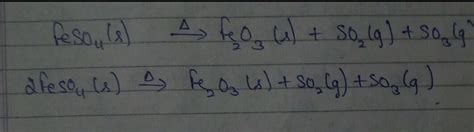 FeSO₄(s) →Δ Fe₂O₃(s) + SO₂(g) + SO₃(g
2FeSO₄(s) →Δ Fe₂O₃(s) + SO₂(g) + SO₃(g)